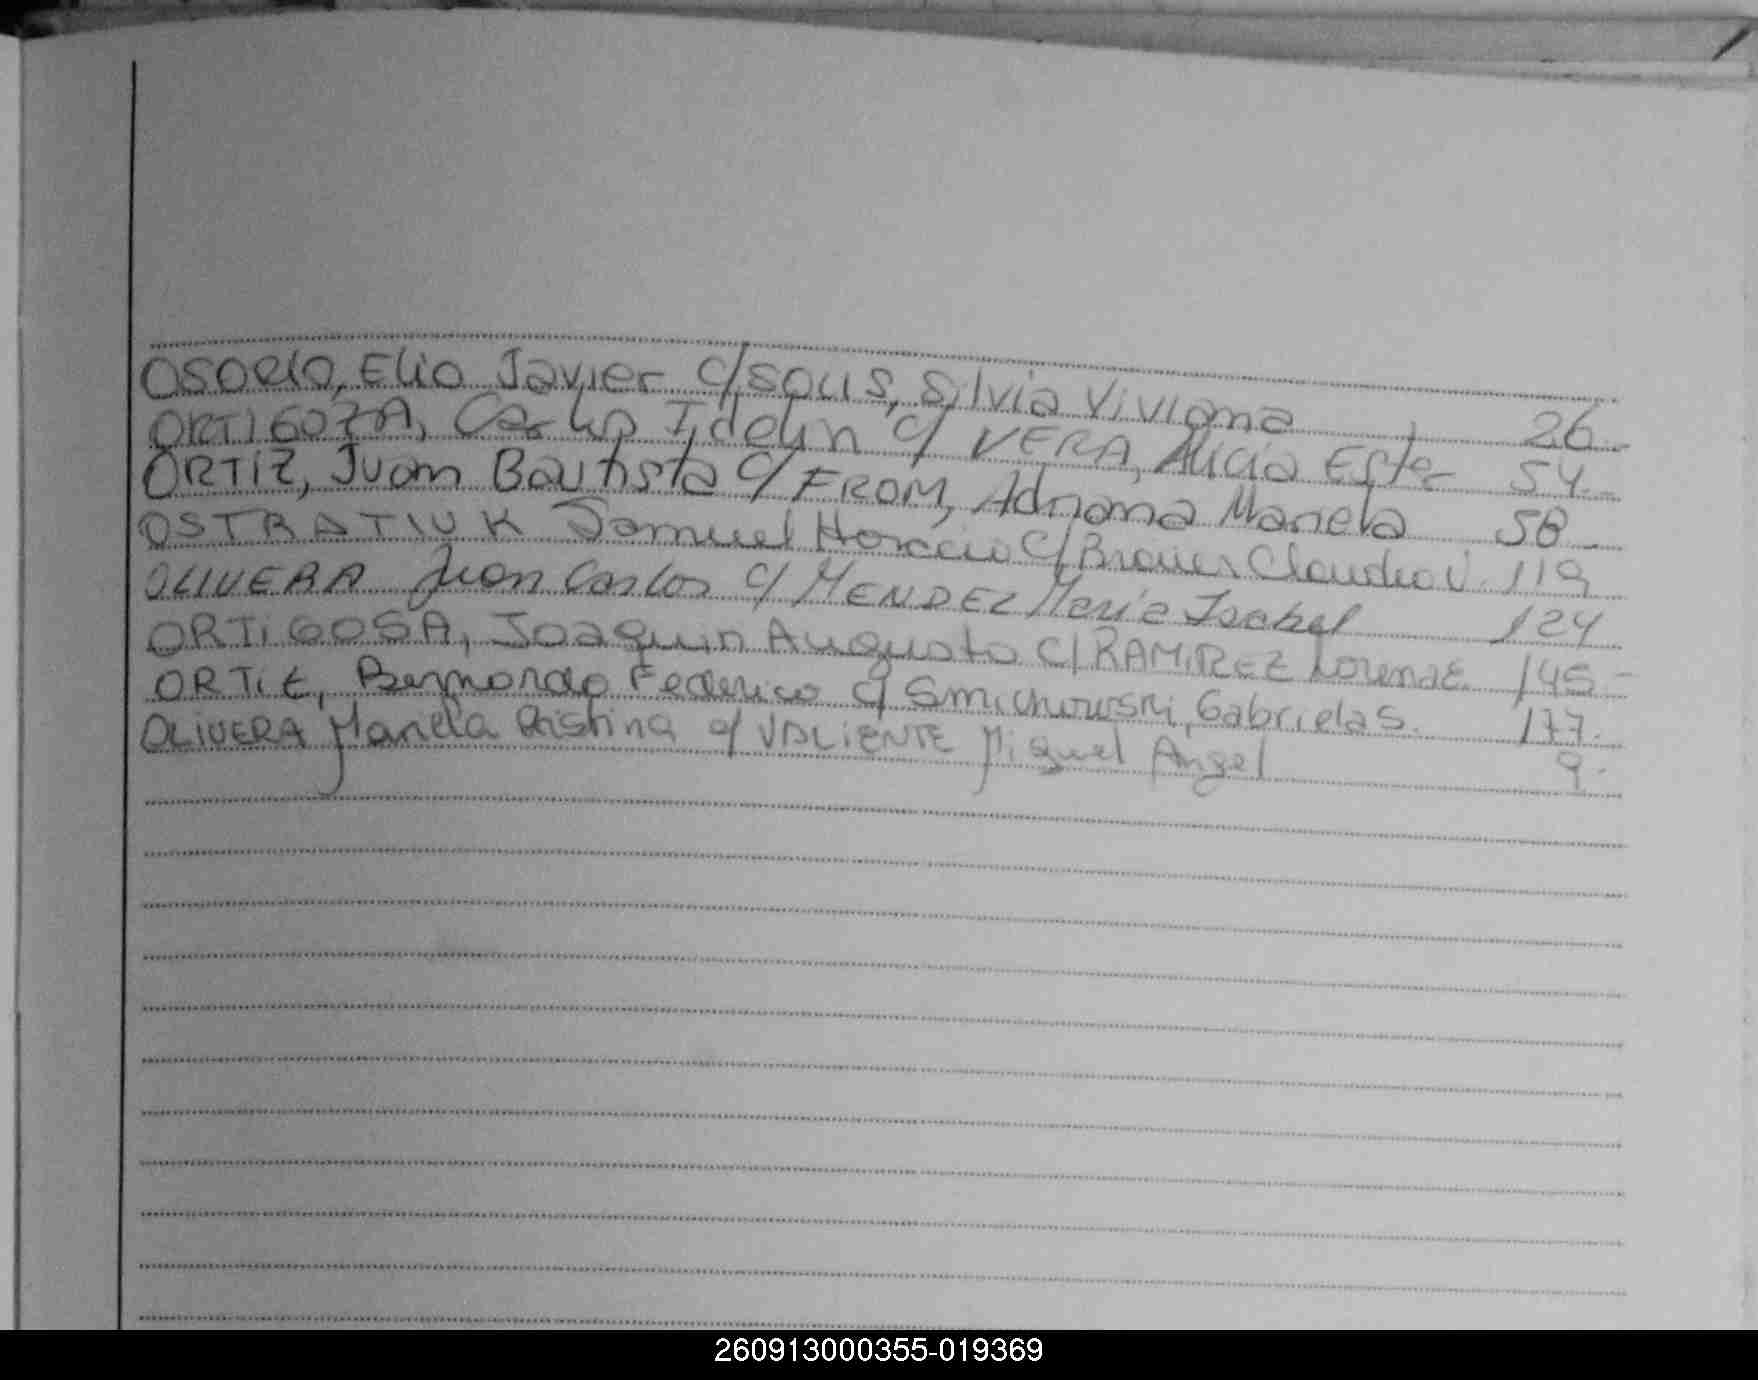 OSORIO, Elio Javier c/ SOLIS, Silvia Viviana 26.-
ORTIGOZA, Carlos Idelin c/ VERA, Alicia Ester 54.-
ORTIZ, Juan Bautista c/ FROM, Adriana Mariela 58-
OSTRATIUK Samuel Horacio c/ Brouer Claudia V. 119
OLIVERA Juan Carlos c/ MENDEZ Maria Isabel 124
ORTIGOSA, Joaquin Augusto C/ RAMIREZ Lorena E. 145-
ORTIZ, Bernardo Federico c/ Smichowski, Gabriela S. 177.
OLIVERA Mariela Cristina c/ VALIENTE Miguel Angel 9.
260913000355-019369